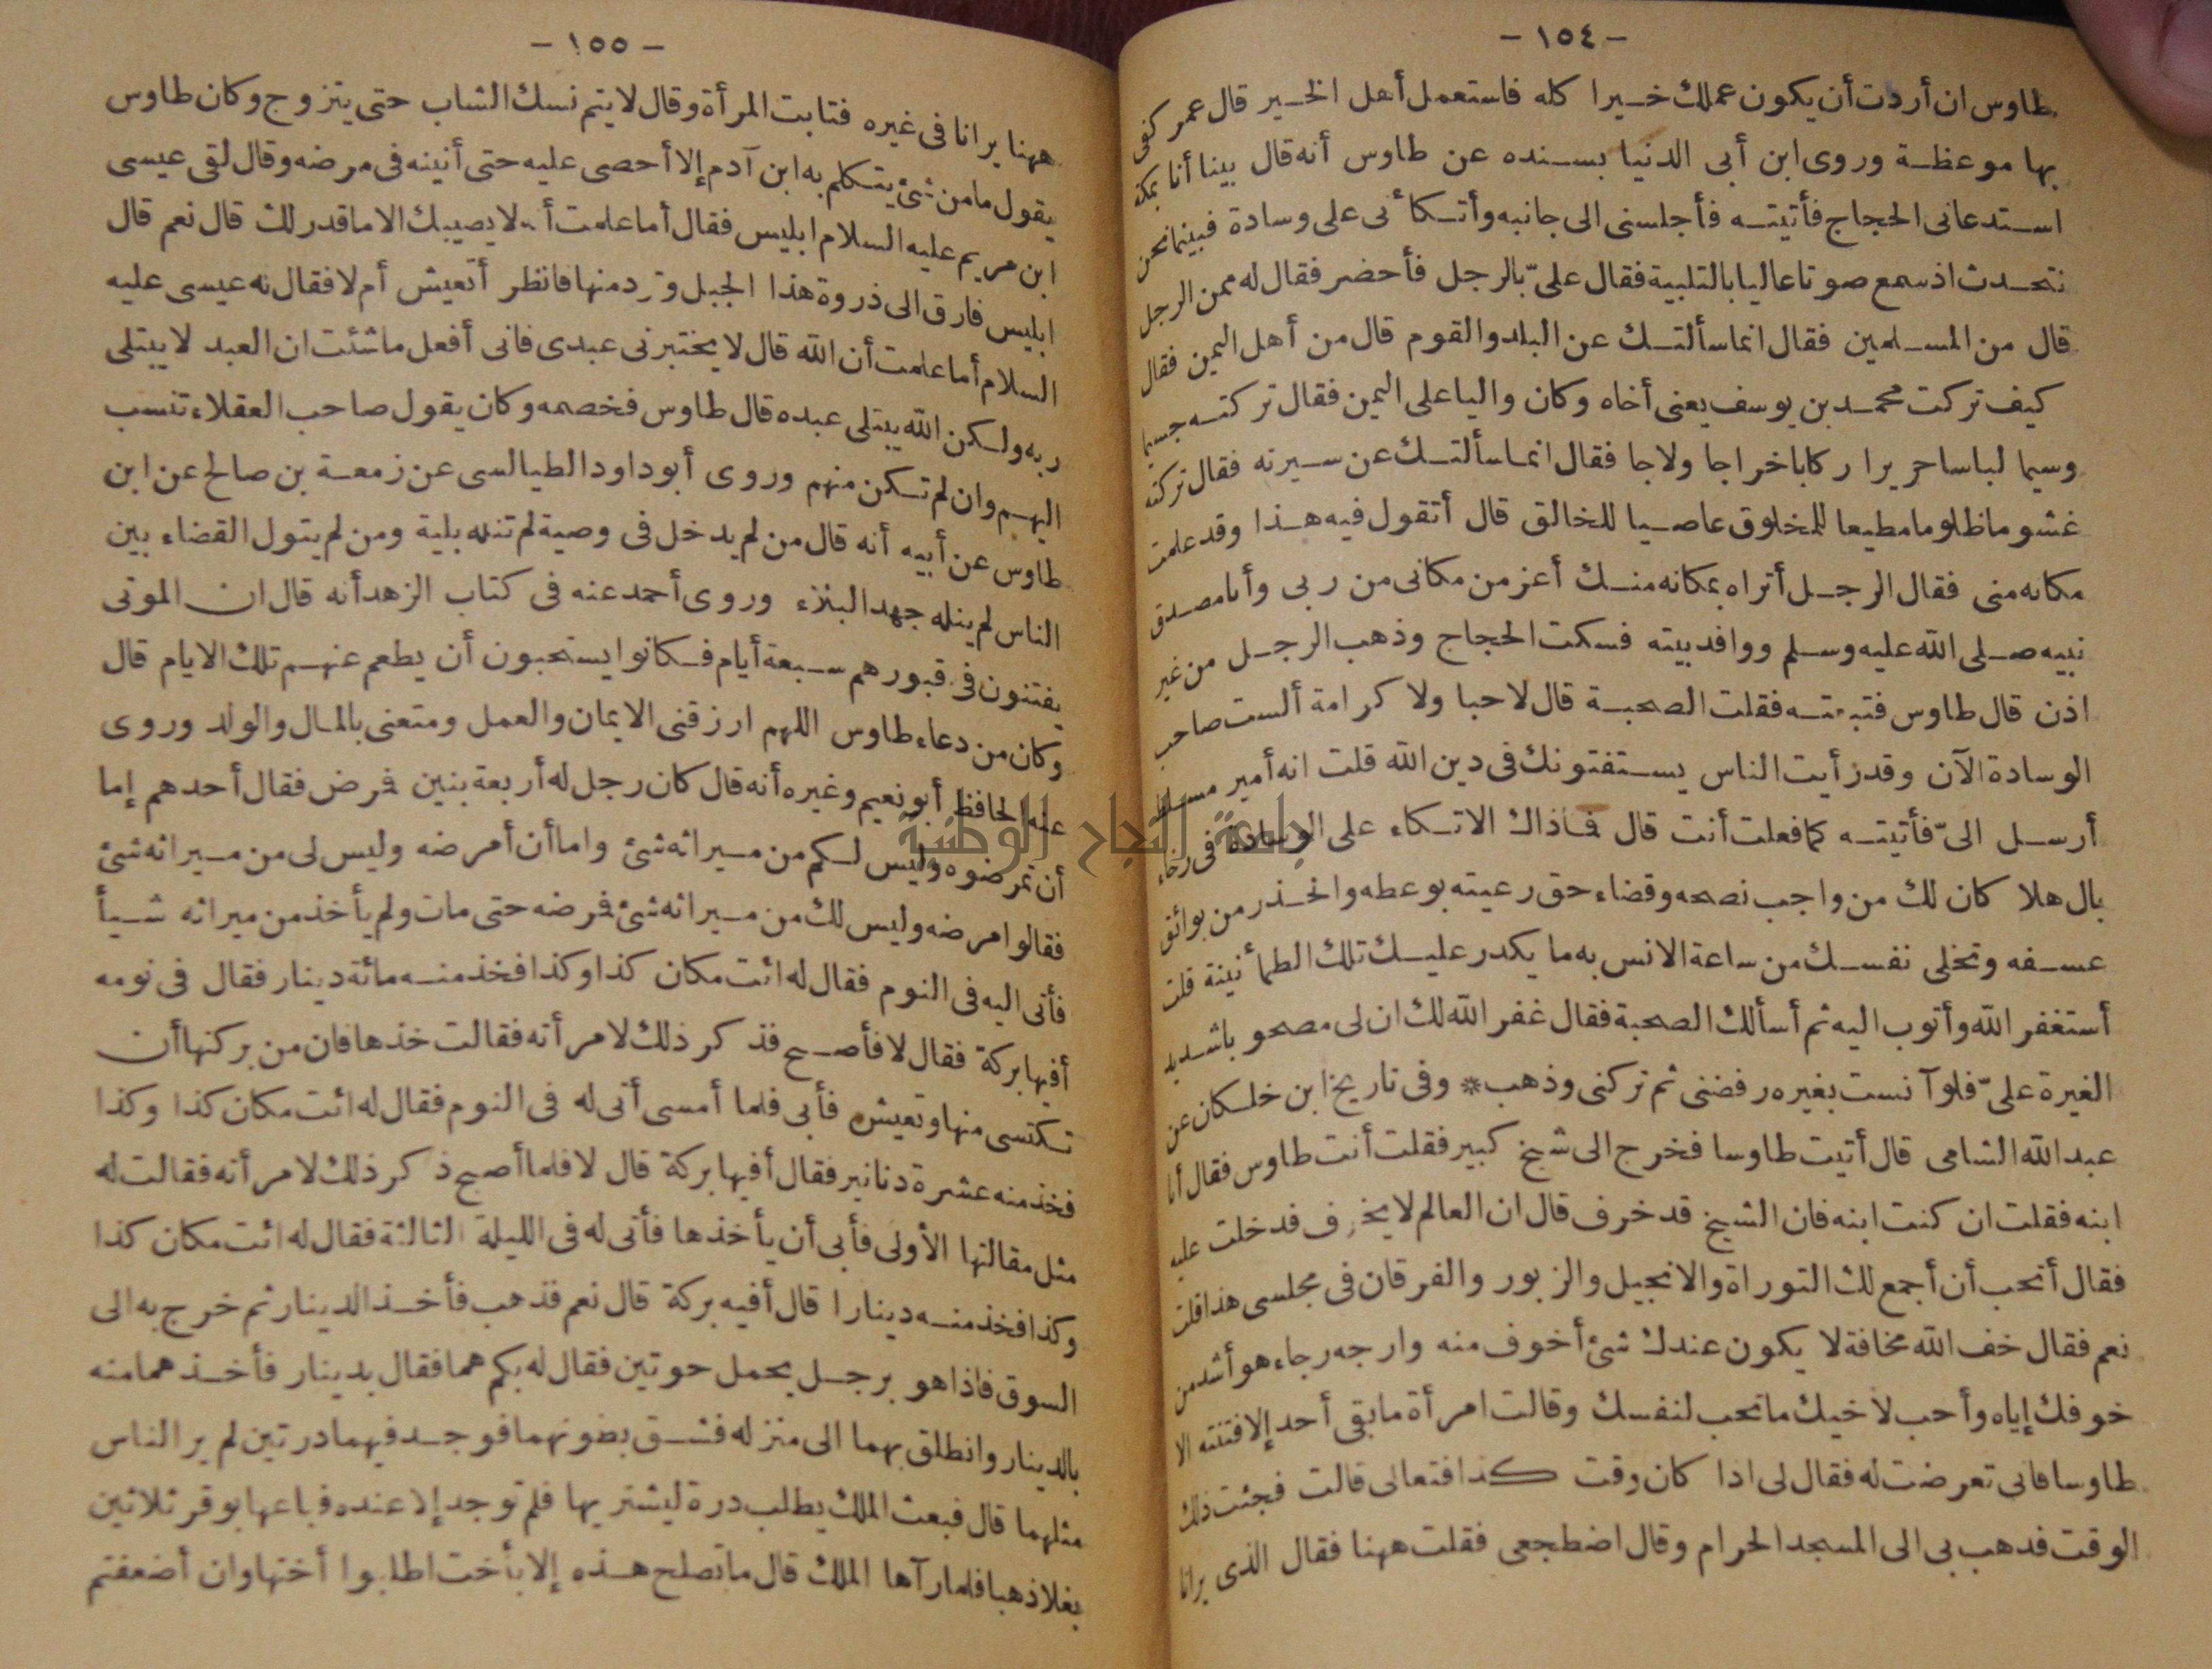 - ١٥٤ -
طاوس ان أردت أن يكون عملك خيرا كله فاستعمل أهل الخير قال عمر كفى
بها موعظة وروى ابن أبى الدنيا بسنده عن طاوس أنه قال بينا أنا بمكة
استدعانى الحجاج فأتيته فأجلسنى الى جانبه وأتكأنى على وسادة فبينما نحن
نتحدث اذ سمع صوتا عاليا بالتلبية فقال علىّ بالرجل فأحضر فقال له ممن الرجل
قال من المسلمين فقال انما سألتك عن البلد والقوم قال من أهل اليمن فقال
كيف تركت محمد بن يوسف يعنى أخاه وكان واليا على اليمن فقال تركته جسيما
وسيما لباسا حريرا ركابا خراجا ولاجا فقال انما سألتك عن سيرته فقال تركته
غشوما ظلوما مطيعا للمخلوق عاصيا للخالق قال أتقول فيه هذا وقد علمت
مكانه منى فقال الرجل أتراه بمكانه منك أعز من مكانى من ربى وأنا مصدق
نبيه صلى الله عليه وسلم ووافد بيته فسكت الحجاج وذهب الرجل من غير
اذن قال طاوس فتبعته فقلت الصحبة قال لا حبا ولا كرامة ألست صاحب
الوسادة الآن وقد رأيت الناس يستفتونك فى دين الله قلت انه أمير مسلط
أرسل الىّ فأتيته كما فعلت أنت قال فما ذاك الاتكاء على الوسادة فى رخاء
بال هلا كان لك من واجب نصحه وقضاء حق رعيته بوعظه والحذر من بوائق
عسفه وتخلى نفسك من ساعة الانس به ما يكدر عليك تلك الطمأنينة قلت
أستغفر الله وأتوب اليه ثم أسألك الصحبة فقال غفر الله لك ان لى مصحوبا شديد
الغيرة علىّ فلو آنست بغيره رفضنى ثم تركنى وذهب * وفى تاريخ ابن خلكان عن
عبد الله الشامى قال أتيت طاوسا فخرج الى شيخ كبير فقلت أنت طاوس فقال أنا
ابنه فقلت ان كنت ابنه فان الشيخ قد خرف قال ان العالم لا يخرف فدخلت عليه
فقال أتحب أن أجمع لك التوراة والانجيل والزبور والفرقان فى مجلسى هذا قلت
نعم فقال خف الله مخافة لا يكون عندك شئ أخوف منه وارجه رجاء هو أشد من
خوفك إياه وأحب لأخيك ما تحب لنفسك وقالت امرأة ما بقى أحد إلا فتنته الا
طاوسا فانى تعرضت له فقال لى اذا كان وقت كذا فتعالى قالت فجئت ذلك
الوقت فذهب بى الى المسجد الحرام وقال اضطجعى فقلت ههنا فقال الذى يرانا
- ١٥٥ -
ههنا يرانا فى غيره فتابت المرأة وقال لا يتم نسك الشاب حتى يتزوج وكان طاوس
يقول ما من شئ يتكلم به ابن آدم إلا أحصى عليه حتى أنينه فى مرضه وقال لقى عيسى
ابن مريم عليه السلام ابليس فقال أما علمت أنه لا يصيبك الا ما قدر لك قال نعم قال
ابليس فارق الى ذروة هذا الجبل وترد منها فانظر أتعيش أم لا فقال له عيسى عليه
السلام أما علمت أن الله قال لا يختبرنى عبدى فانى أفعل ما شئت ان العبد لا يبتلى
ربه ولكن الله يبتلى عبده قال طاوس فخصمه وكان يقول صاحب العقلاء تنسب
اليهم وان لم تكن منهم وروى أبو داود الطيالسى عن زمعة بن صالح عن ابن
طاوس عن أبيه أنه قال من لم يدخل فى وصية لم تنله بلية ومن لم يتول القضاء بين
الناس لم ينله جهد البلاء وروى أحمد عنه فى كتاب الزهد أنه قال ان الموتى
يفتنون فى قبورهم سبعة أيام فكانوا يستحبون أن يطعم عنهم تلك الايام قال
وكان من دعاء طاوس اللهم ارزقنى الايمان والعمل ومتعنى بالمال والولد وروى
عنه الحافظ أبو نعيم وغيره أنه قال كان رجل له أربعة بنين فمرض فقال أحدهم إما
أن تمرضوه وليس لكم من ميراثه شئ واما أن أمرضه وليس لى من ميراثه شئ
فقالوا مرضه وليس لك من ميراثه شئ فمرضه حتى مات ولم يأخذ من ميراثه شيأ
فأتى اليه فى النوم فقال له ائت مكان كذا وكذا فخذ منه مائة دينار فقال فى نومه
أفيها بركة فقال لا فأصبح فذكر ذلك لامرأته فقالت خذها فان من بركتها أن
تكتسى منها وتعيش فأبى فلما أمسى أتى له فى النوم فقال له ائت مكان كذا وكذا
فخذ منه عشرة دنانير فقال أفيها بركة قال لا فلما أصبح ذكر ذلك لامرأته فقالت له
مثل مقالتها الأولى فأبى أن يأخذها فأتى له فى الليلة الثالثة فقال له ائت مكان كذا
وكذا فخذ منه دينارا قال أفيه بركة قال نعم فذهب فأخذ الدينار ثم خرج به الى
السوق فاذا هو برجل يحمل حوتين فقال له بكم هما فقال بدينار فأخذهما منه
بالدينار وانطلق بهما الى منزله فشق بطونهما فوجد فيهما درتين لم ير الناس
مثلهما قال فبعث الملك يطلب درة ليشتريها فلم توجد إلا عنده فباعها بوقر ثلاثين
بغلا ذهبا فلما رآها الملك قال ما تصلح هذه إلا بأخت اطلبوا أختها وان أضعفتم
جامعة النجاح الوطنية